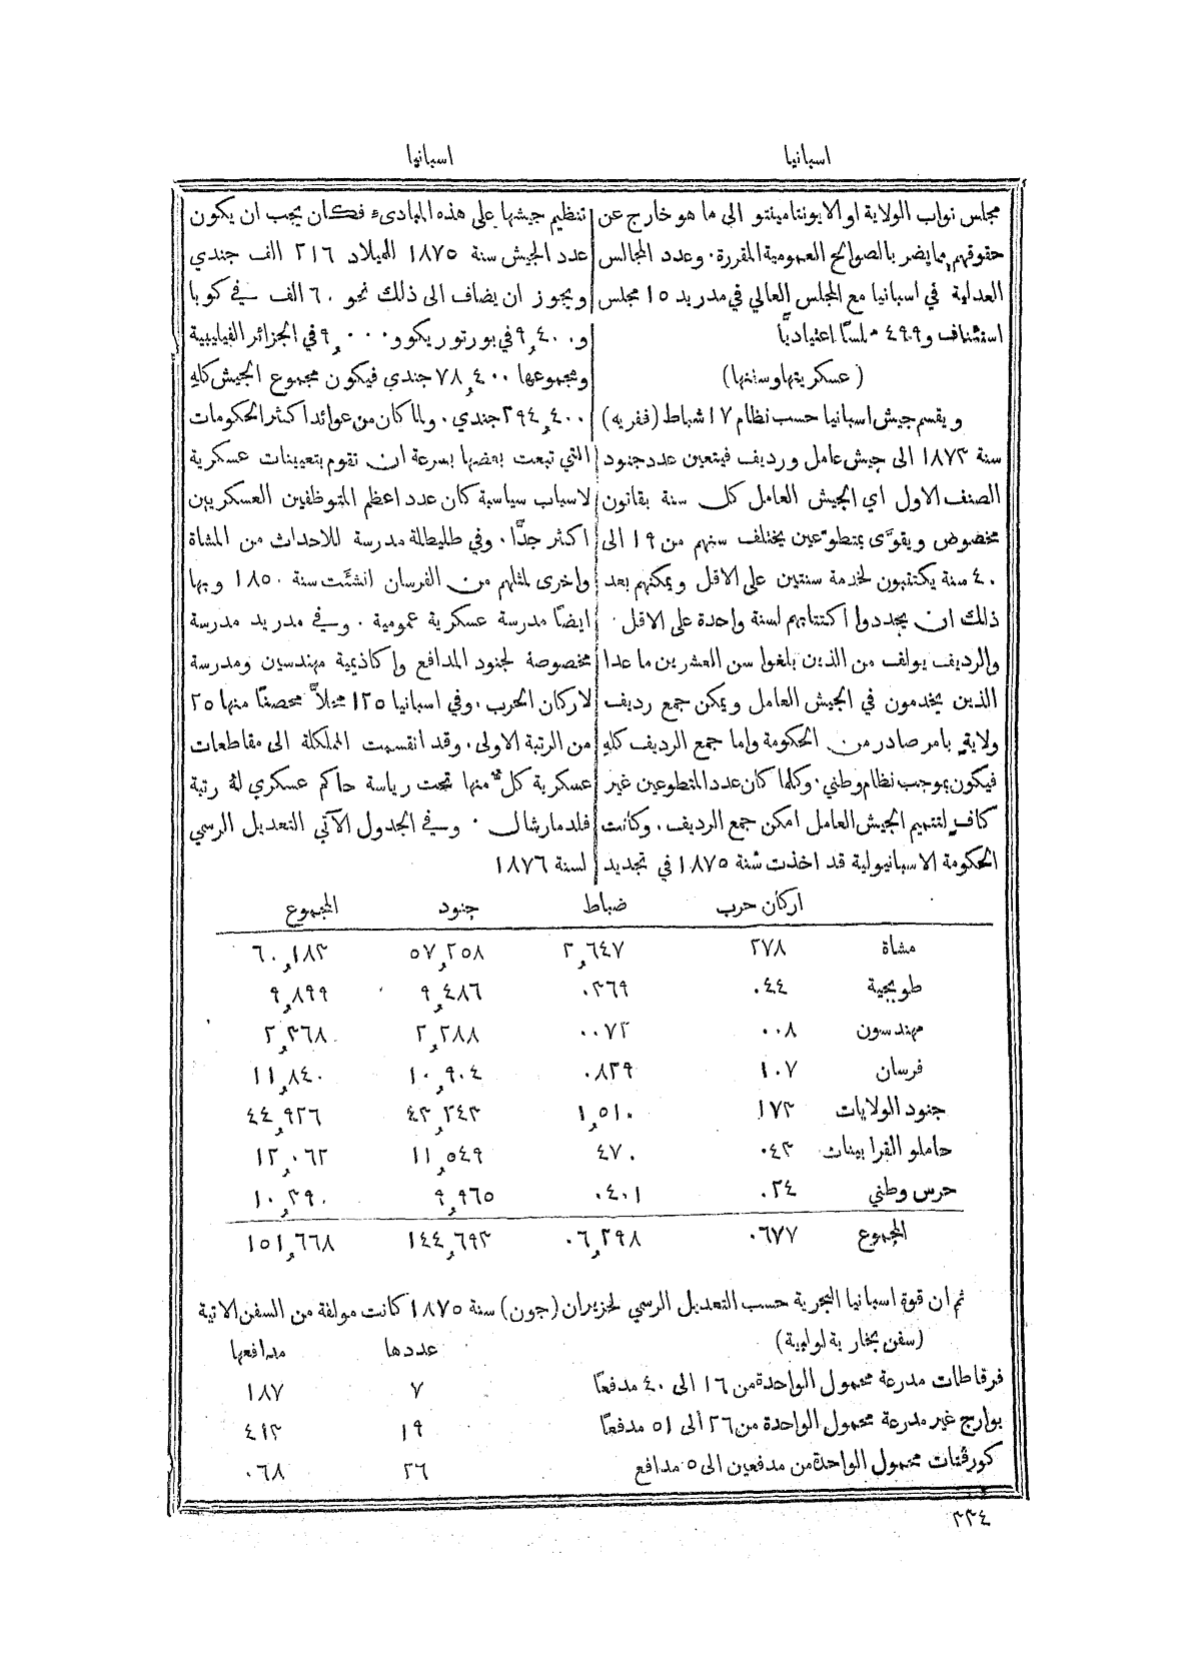 اسبانيا
اسبانيا
مجلس نواب الولاية او الايونتامينتو الى ما هو خارج عن
حقوقهم مما يضر بالصوالح العمومية المقررة. وعدد المجالس
العدلية في اسبانيا مع المجلس العالي في مدريد ١٥ مجلس
استئناف و٤٩٩ مجلسًا اعتياديًّا
(عسكريتها وسفنها)
ويقسم جيش اسبانيا حسب نظام ١٧ شباط (ففريه)
سنة ١٨٧٣ الى جيش عامل ورديف فيتعين عدد جنود
الصنف الاول اي الجيش العامل كل سنة بقانون
مخصوص ويقوَّى بمتطوّعين يختلف سنهم من ١٩ الى
٤٠ سنة يكتتبون لخدمة سنتين على الاقل ويمكنهم بعد
ذلك ان يجددوا اكتتابهم لسنة واحدة على الاقل.
والرديف يولف من الذين بلغوا سن العشرين ما عدا
الذين يخدمون في الجيش العامل ويمكن جمع رديف
ولايةٍ بامر صادر من الحكومة واما جمع الرديف كلهِ
فيكون بموجب نظام وطني. وكلما كان عدد المتطوعين غير
كافٍ لتتميم الجيش العامل امكن جمع الرديف. وكانت
الحكومة الاسبانيولية قد اخذت سنة ١٨٧٥ في تجديد
تنظيم جيشها على هذه المبادىء فكان يجب ان يكون
عدد الجيش سنة ١٨٧٥ للميلاد ٢١٦ الف جندي
ويجوز ان يضاف الى ذلك نحو ٦٠ الف في كوبا
و٩,٤٠٠ في بورتوريكو و٩,٠٠٠ في الجزائر الفيليبية
ومجموعها ٧٨,٤٠٠ جندي فيكون مجموع الجيش كلهِ
٢٩٤,٤٠٠ جندي. ولما كان من عوائد اكثر الحكومات
التي تبعت بعضها بسرعة ان تقوم بتعيينات عسكرية
لاسباب سياسية كان عدد اعظم المتوظفين العسكريين
اكثر جدًّا. وفي طليطلة مدرسة للاحداث من المشاة
واخرى لمثلهم من الفرسان انشئت سنة ١٨٥٠ وبها
ايضًا مدرسة عسكرية عمومية. وفي مدريد مدرسة
مخصوصة لجنود المدافع واكاذيمية مهندسين ومدرسة
لاركان الحرب. وفي اسبانيا ١٢٥ محلاًّ محصنًا منها ٢٥
من الرتبة الاولى. وقد انقسمت المملكة الى مقاطعات
عسكرية كلٌّ منها تحت رياسة حاكم عسكري لهُ رتبة
فلدمارشال. وفي الجدول الآتي التعديل الرسمي
لسنة ١٨٧٦
اركان حرب ضباط جنود المجموع
مشاة ٢٧٨ ٢,٦٤٧ ٥٧,٢٥٨ ٦٠,١٨٣
طوبجية ٠٤٤ ٠٣٦٩ ٩,٤٨٦ ٩,٨٩٩
مهندسون ٠٠٨ ٠٠٧٢ ٢,٢٨٨ ٢,٣٦٨
فرسان ١٠٧ ٠٨٢٩ ١٠,٩٠٤ ١١,٨٤٠
جنود الولايات ١٧٣ ١,٥١٠ ٤٣,٢٤٣ ٤٤,٩٢٦
حاملو القرابينات ٠٤٣ ٤٧٠ ١١,٥٤٩ ١٢,٠٦٢
حرس وطني ٠٢٤ ٠٤٠١ ٩,٩٦٥ ١٠,٣٩٠
المجموع ٠٦٧٧ ٠٦,٢٩٨ ١٤٤,٦٩٣ ١٥١,٦٦٨
ثم ان قوة اسبانيا البحرية حسب التعديل الرسمي لحزيران (جون) سنة ١٨٧٥ كانت مولفة من السفن الاتية
(سفن بخارية لولبية) عددها مدافعها
فرقاطات مدرعة محمول الواحدة من ١٦ الى ٤٠ مدفعًا ٧ ١٨٧
بوارج غير مدرعة محمول الواحدة من ٢٦ الى ٥١ مدفعًا ١٩ ٤١٣
كورڤتات محمول الواحدة من مدفعين الى ٥ مدافع ٢٦ ٠٦٨
٣٣٤